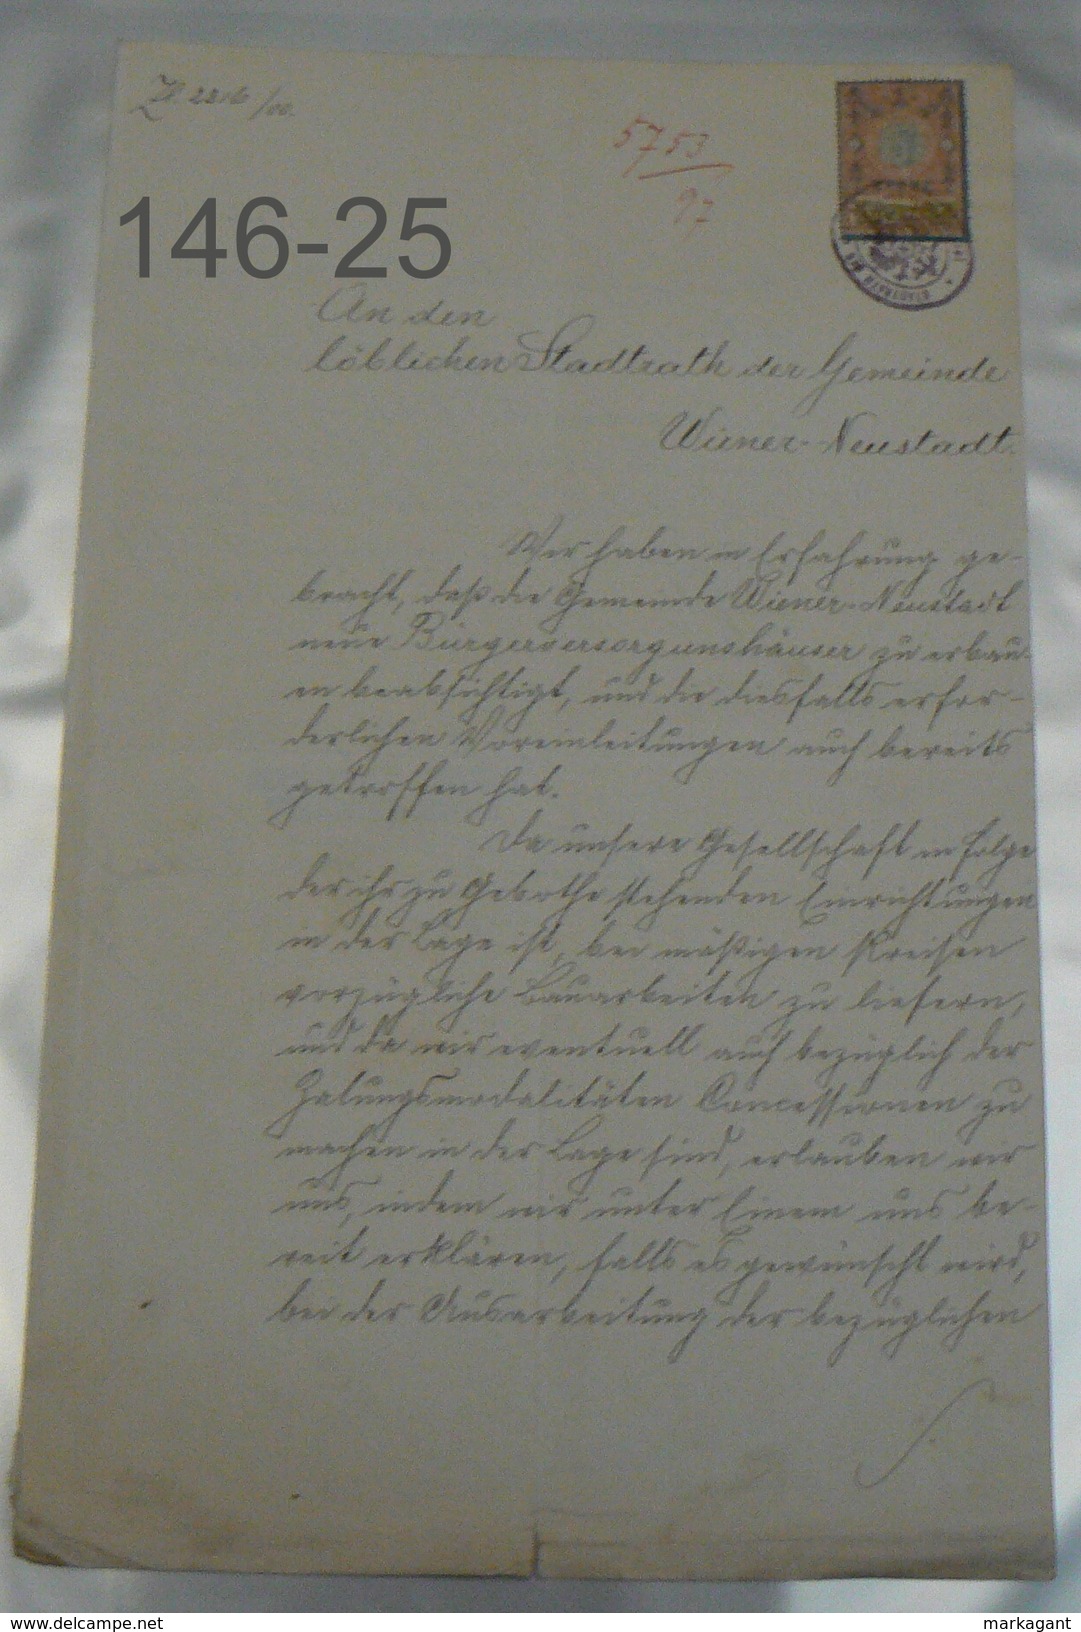 Zl. 2216/00.
5753
97
146-25
An den
löblichen Stadtrath der Gemeinde
Wiener-Neustadt.
Wir haben in Erfahrung ge-
bracht, daß die Gemeinde Wiener-Neustadt
neue Bürgerversorgunshäuser zu erbau-
en beabsichtigt, und die diesfalls erfor-
derlichen Voreinleitungen auch bereits
getroffen hat.
Da unsere Gesellschaft in folge
der ihr zu Gebothe stehenden Einrichtungen
in der Lage ist, bei mäßigen Preisen
vorzügliche Bauarbeiten zu liefern,
und da wir eventuell auch bezüglich der
Zalungsmodalitäten Concessionen zu
machen in der Lage sind, erlauben wir
uns, indem wir unter Einem uns be-
reit erklären, falls es gewünscht wird,
bei der Ausarbeitung der bezüglichen
www.delcampe.net
markagant